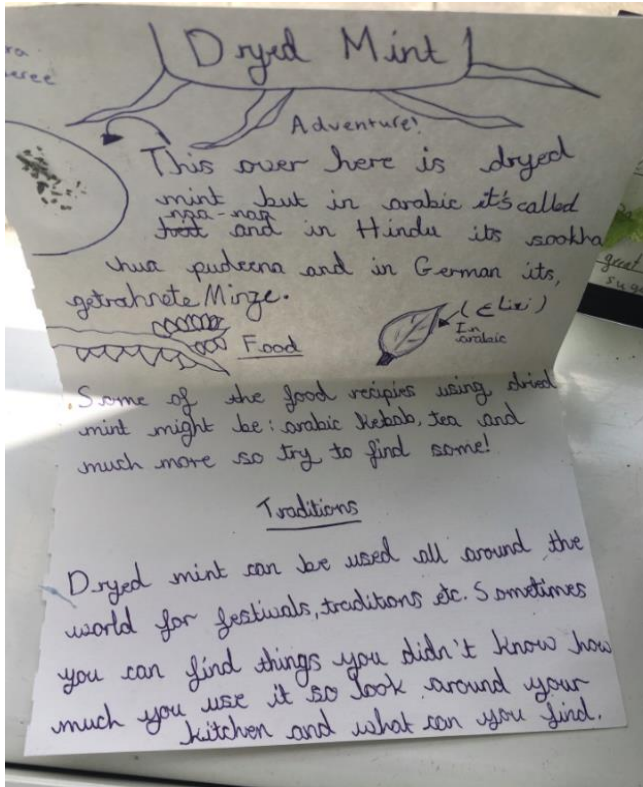 Dryed Mint
Adventure!
This over here is dryed
mint but in arabic it's called
nga-nag
and in Hindu its sookha
hua pudeena and in German its,
getrahnete Minze.
Food
In
arabic
Some of the food recipies using dried
mint might be: arabic Kebab, tea and
much more so try to find some!
Traditions
Dryed mint can be used all around the
world for festivals, traditions etc. Sometimes
you can find things you didn't know how
much you use it so look around your
kitchen and what can you find.